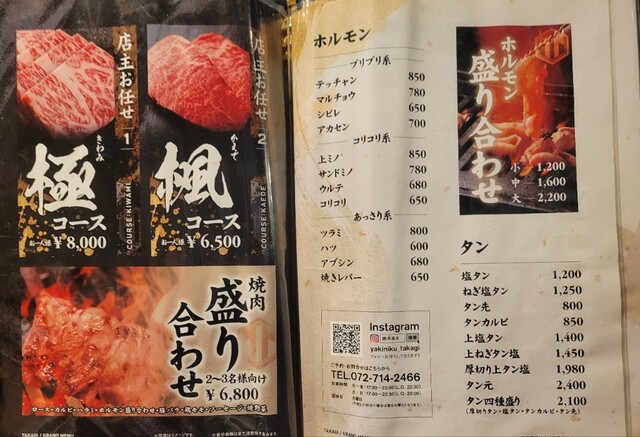 店主お任せ 1
きわみ
極
コース
お一人様 ¥8,000
COURSE:KIWAMI
店主お任せ 2
かえで
楓
コース
お一人様 ¥6,500
COURSE:KAEDE
焼肉
盛り
合わせ
2〜3名様向け
¥6,800
ロース・カルビ・ハラミ・ホルモン盛り合わせ・豚バラ・鶏モモ・ソーセージ・焼野菜
TAKAGI / GRAND MENU
ホルモン
プリプリ系
テッチャン 850
マルチョウ 780
シビレ 650
アカセン 700
コリコリ系
上ミノ 850
サンドミノ 780
ウルテ 680
コリコリ 650
あっさり系
ツラミ 800
ハツ 600
アブシン 680
焼きレバー 650
Instagram
yakiniku_takagi
ご予約・お問合せはこちらから
TEL.072-714-2466
TAKAGI / GRAND MENU
ホルモン
盛り合わせ
小 1,200
中 1,600
大 2,200
タン
塩タン 1,200
ねぎ塩タン 1,250
タン先 800
タンカルビ 850
上塩タン 1,400
上ねぎタン塩 1,450
厚切り上タン塩 1,980
タン元 2,400
タン四種盛り 2,100
(厚切りタン・塩タン・タンカルビ・タン先)